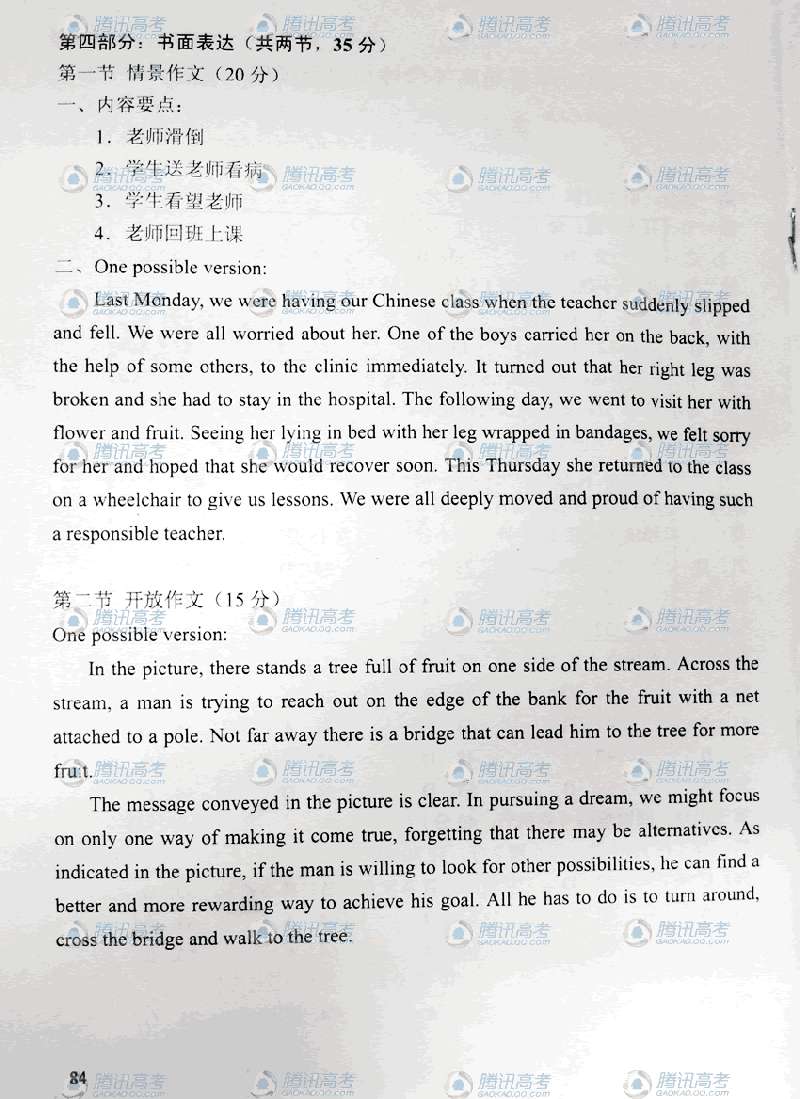 第四部分：书面表达（共两节，35 分）
第一节 情景作文（20 分）
一、内容要点：
1．老师滑倒
2．学生送老师看病
3．学生看望老师
4．老师回班上课
二、One possible version:
Last Monday, we were having our Chinese class when the teacher suddenly slipped
and fell. We were all worried about her. One of the boys carried her on the back, with
the help of some others, to the clinic immediately. It turned out that her right leg was
broken and she had to stay in the hospital. The following day, we went to visit her with
flower and fruit. Seeing her lying in bed with her leg wrapped in bandages, we felt sorry
for her and hoped that she would recover soon. This Thursday she returned to the class
on a wheelchair to give us lessons. We were all deeply moved and proud of having such
a responsible teacher.
第二节 开放作文（15 分）
One possible version:
In the picture, there stands a tree full of fruit on one side of the stream. Across the
stream, a man is trying to reach out on the edge of the bank for the fruit with a net
attached to a pole. Not far away there is a bridge that can lead him to the tree for more
fruit.
The message conveyed in the picture is clear. In pursuing a dream, we might focus
on only one way of making it come true, forgetting that there may be alternatives. As
indicated in the picture, if the man is willing to look for other possibilities, he can find a
better and more rewarding way to achieve his goal. All he has to do is to turn around,
cross the bridge and walk to the tree.
84
腾讯高考
GAOKAO.QQ.com